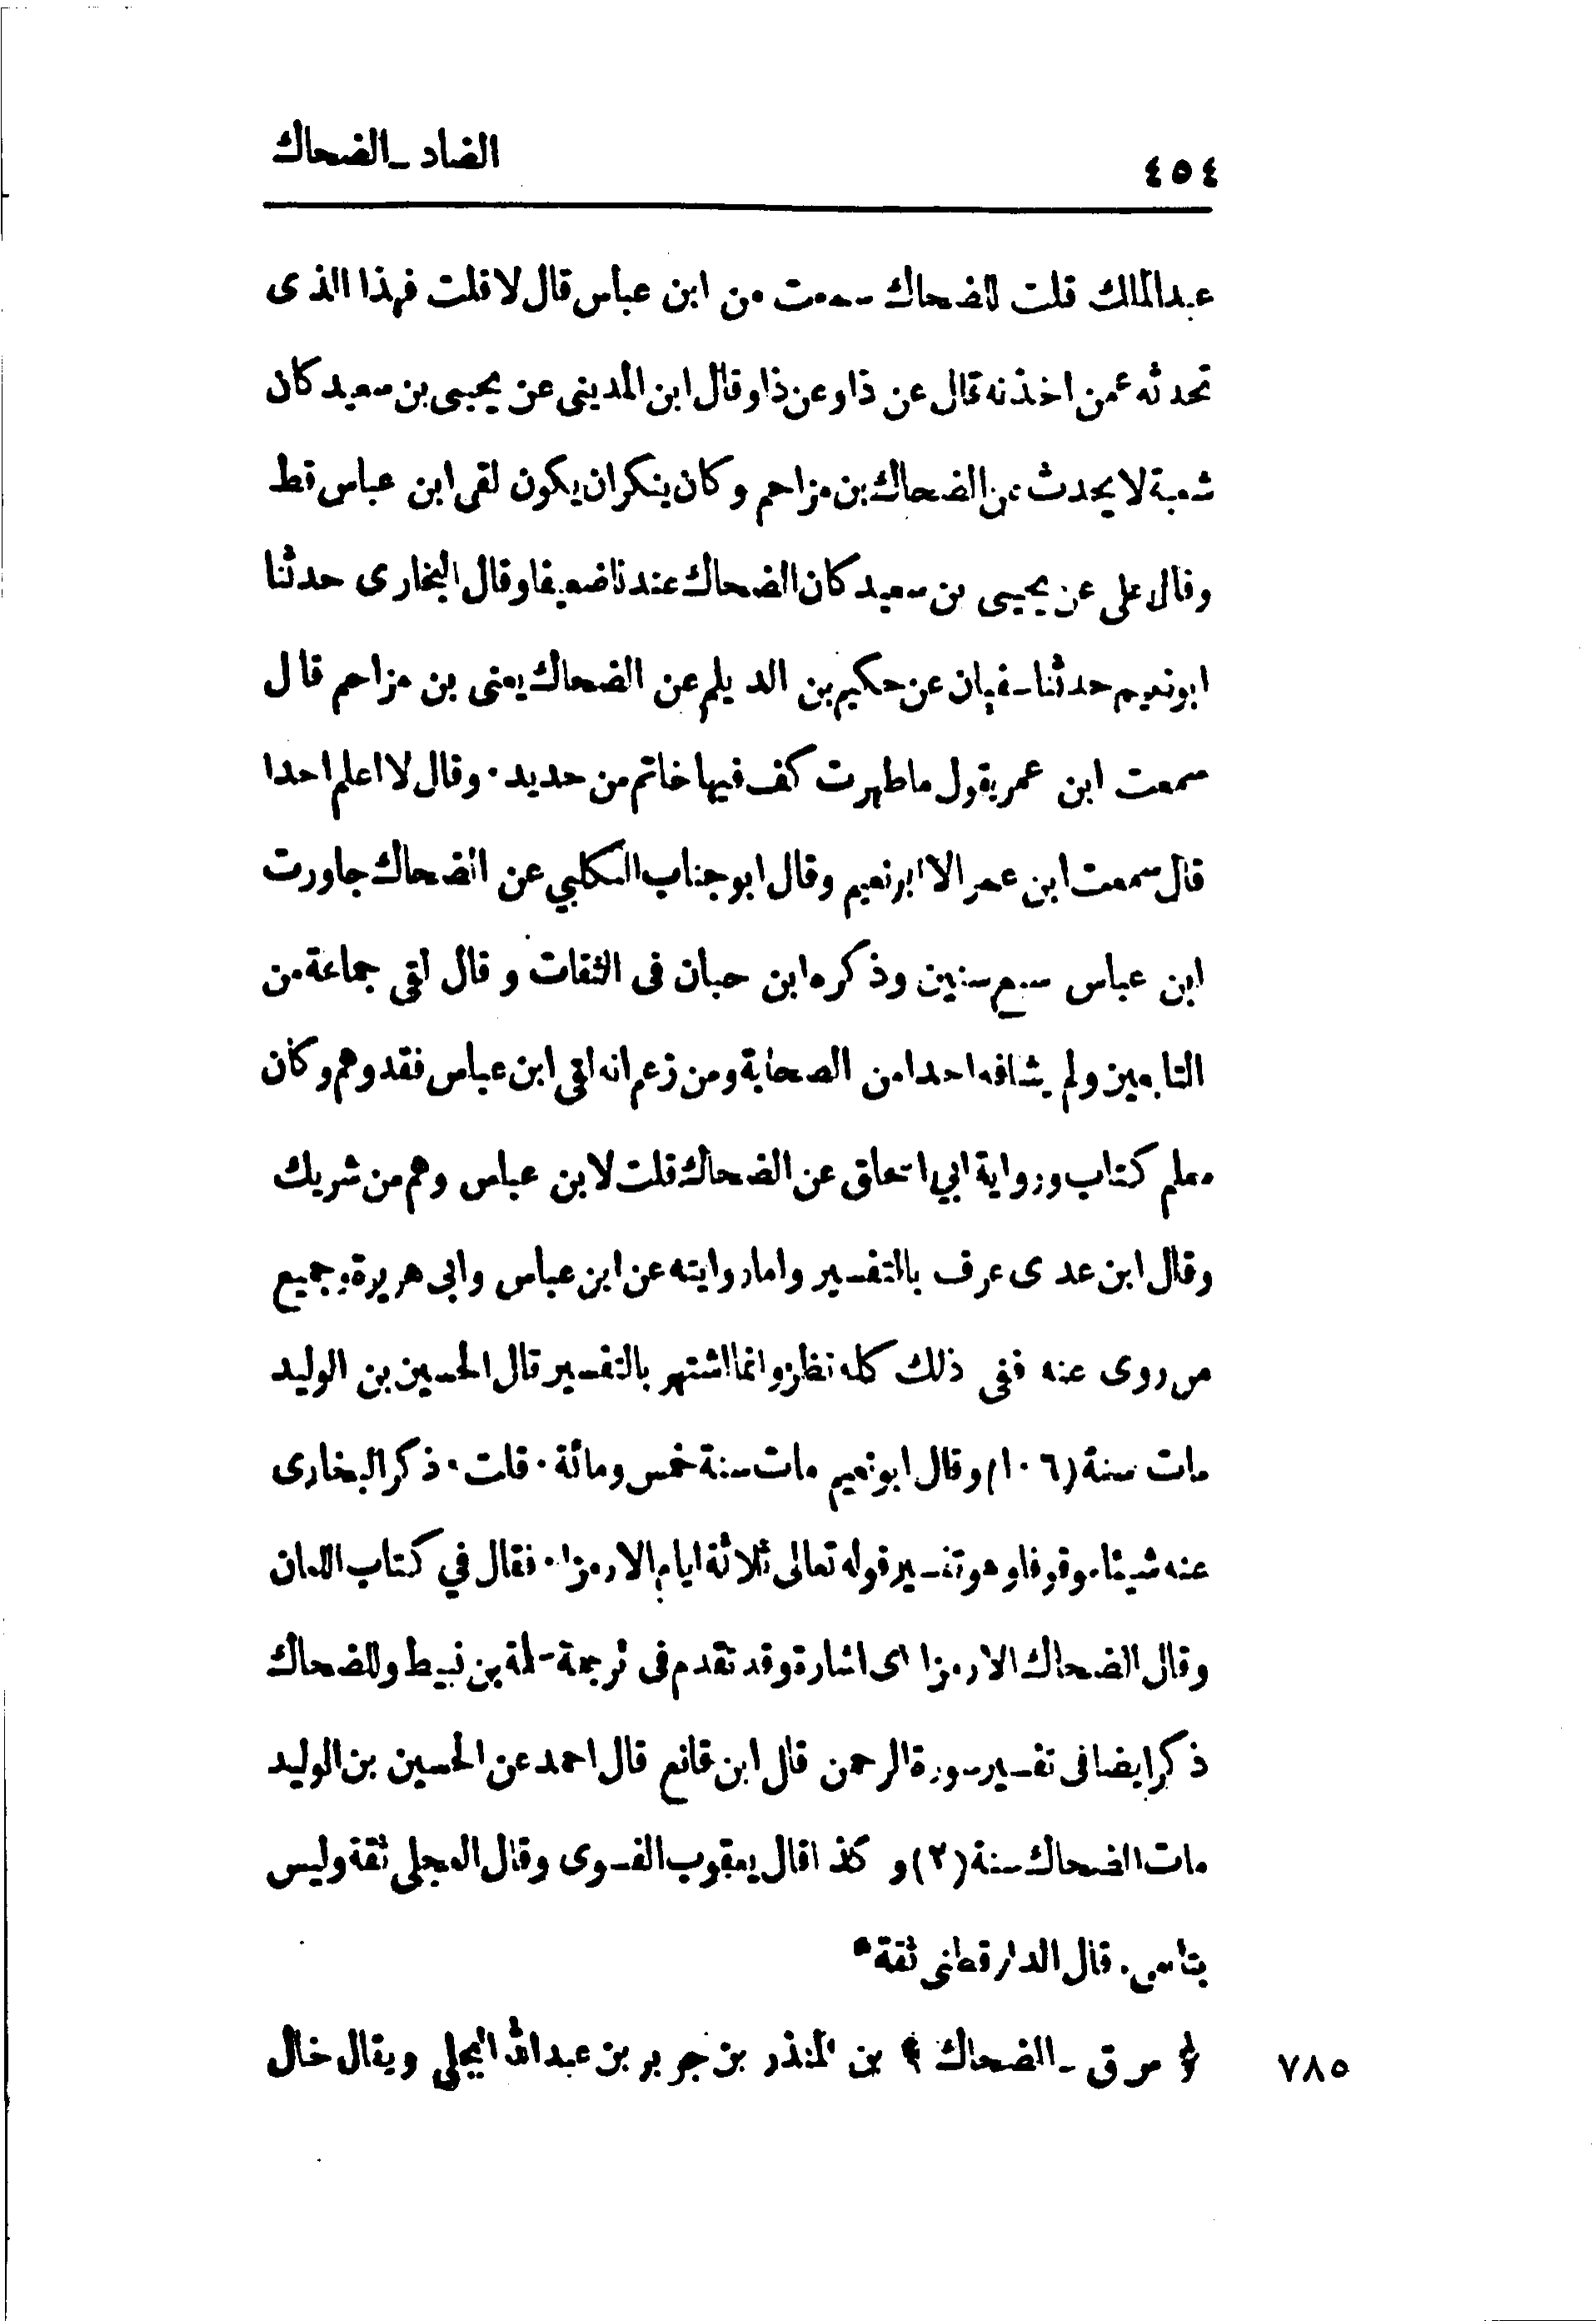 ٤٥٤
الضاد ـ الضحاك
عبدالملك قلت للضحاك سمعت من ابن عباس قال لا قلت فهذا الذى
تحدثه عمن اخذته قال عن ذا وعن ذا وقال ابن المديني عن يحيى بن سعيد كان
شعبة لا يحدث عن الضحاك بن مزاحم وكان ينكر ان يكون لقى ابن عباس قط
وقال على عن يحيى بن سعيد كان الضحاك عندنا ضعيفا وقال البخارى حدثنا
ابو نعيم حدثنا سفيان عن حكيم بن الديلم عن الضحاك يعنى بن مزاحم قال
سمعت ابن عمر يقول ما طهرت كف فيها خاتم من حديد . وقال لا اعلم احدا
قال سمعت ابن عمر الا ابو نعيم وقال ابو جناب الكلبي عن الضحاك جاورت
ابن عباس سبع سنين وذكره ابن حبان فى الثقات وقال لقى جماعة من
التابعين ولم يشافه احدا من الصحابة ومن زعم انه لقى ابن عباس فقد وهم وكان
معلم كتاب ورواية ابي اسحاق عن الضحاك قلت لابن عباس وهم من شريك
وقال ابن عدى عرف بالتفسير واما روايته عن ابن عباس وابى هريرة وجميع
من روى عنه ففى ذلك كله نظر وانما اشتهر بالتفسير قال الحسين بن الوليد
مات سنة (١٠٦) وقال ابو نعيم مات سنة خمس ومائة . قلت . ذكر البخارى
عنه شيئا موقوفا وهو تفسير قوله تعالى ثلاثة ايام الا رمزا . فقال في كتاب اللعان
وقال الضحاك الا رمزا اى اشارة وقد تقدم فى ترجمة سلمة بن نبيط وللضحاك
ذكر ايضا فى تفسير سورة الرحمن قال ابن قانع قال احمد عن الحسين بن الوليد
مات الضحاك سنة (٢) و كذا قال يعقوب الفسوى وقال العجلى ثقة وليس
بتابعى . قال الدارقطنى ثقة *
٧٨٥ ﴿ س ق ـ الضحاك ﴾ بن المنذر بن جرير بن عبدالله البجلى ويقال خال